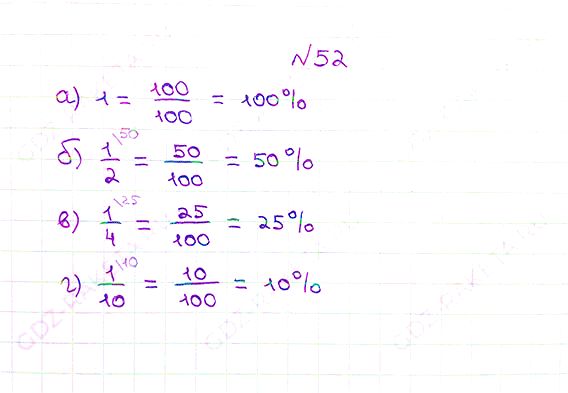 №52
а) 1 = 100/100 = 100%
б) 1\50/2 = 50/100 = 50%
в) 1\25/4 = 25/100 = 25%
г) 1\10/10 = 10/100 = 10%